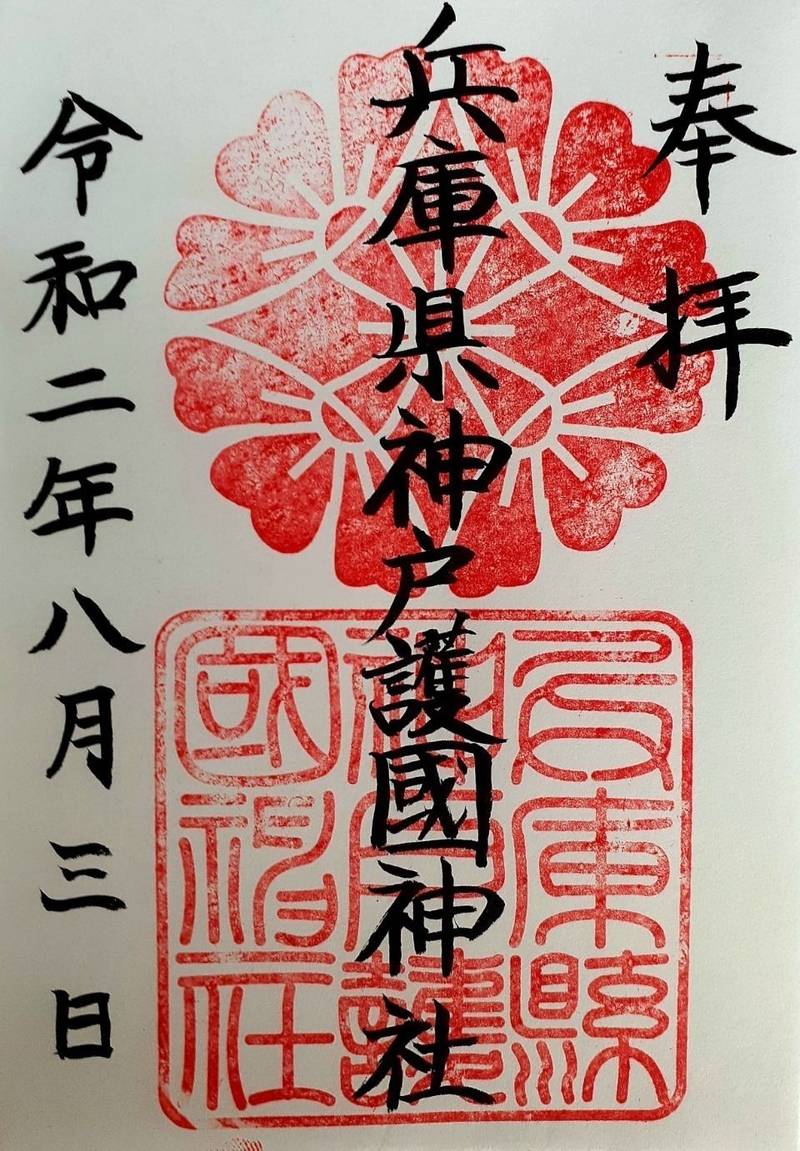 奉拝
兵庫県神戸護國神社
令和二年八月三日
兵庫縣
神戸護
國神社